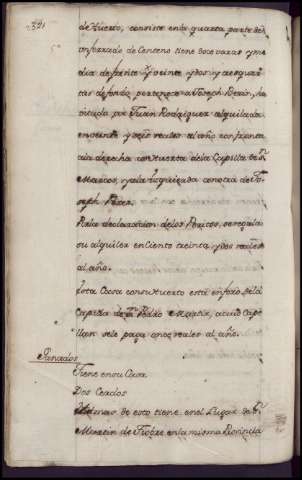 321
de Huerto, consiste en la quarta parte de un
forrado de Centeno tiene doce varas y me
dia de frente y veinte y dos y tres quar
tas de fondo, pertenece a Joseph Perez, ha
vitada por Juan Rodriguez alquilada
en veinte y seis reales al año confronta
a la derecha con Huerta de la Capilla de Sn
Marcos, y a la Izquierda con otra de Jo
seph Perez.
Por la declaracion de los Peritos, se regula
su alquiler en Ciento treinta y dos reales
al año.
Esta Casa con su Huerto está en foro de la
Capilla de Dn Pedro a cuio Cape
llan se le paga once reales al año.
Ganados
Tiene en su Casa
Dos Cerdos
Ademas de esto tiene en el Lugar de Sn
Martin de en la misma Provincia